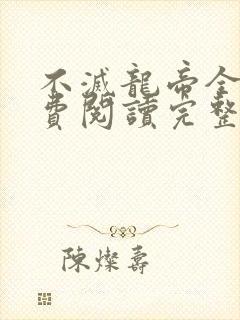 不滅龍帝全
費閱讀完整
陳燦壽